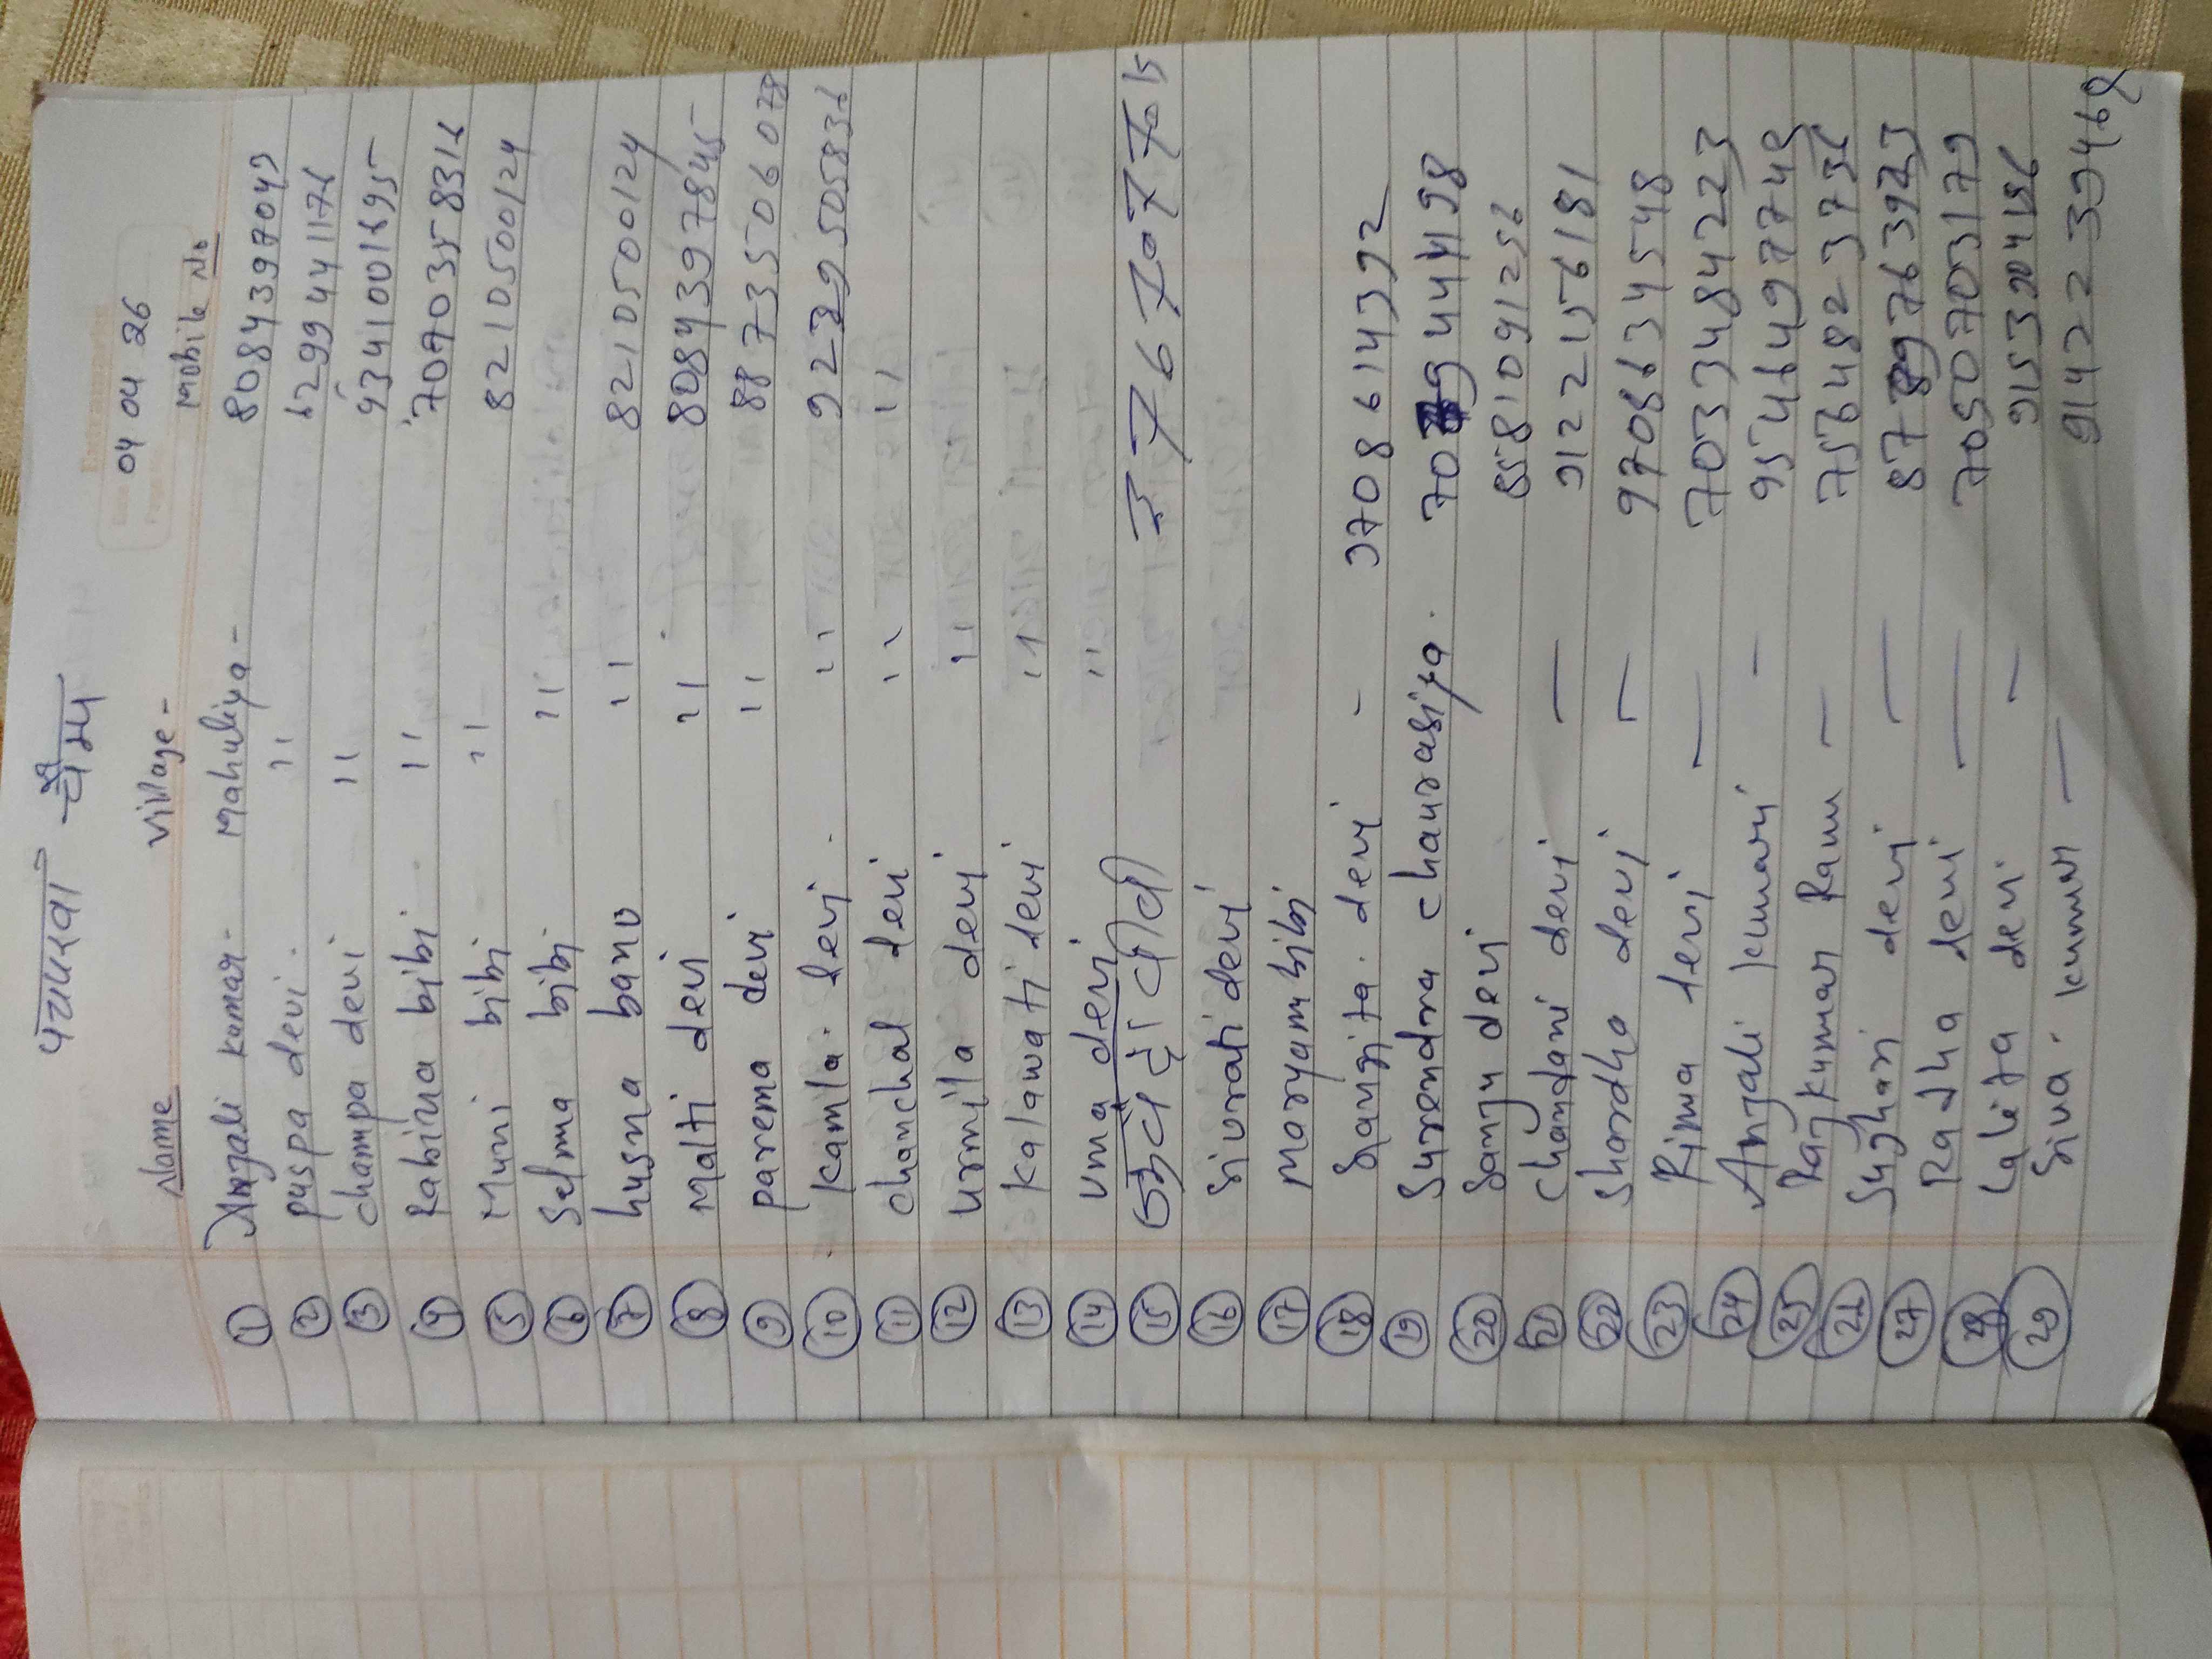 पचपखा कैम्प
04 04 26
Name Village - Mobile No
① Anjali kumar - Mahuliya - 8084397049
② puspa devi . " 6299441176
③ champa devi " 9341001695
④ Rabina bibi " 7070358316
⑤ Muni bibi " 8210500124
⑥ Selma bibi "
⑦ husna bano " 8210500124
⑧ Malti devi " 8084397845
⑨ parema devi " 8873550607
⑩ kamla devi . " 9229505836
⑪ chanchal devi " "
⑫ urmila devi "
⑬ kalawati devi "
⑭ uma devi "
⑮ 9767077015
⑯ sivrati devi
⑰ maryam bibi
⑱ Sangita . devi - 9708614392
⑲ Surendra chaurasiya . 709444198
⑳ Sanju devi 8581091256
㉑ chandani devi — 9122156181
㉒ Shardha devi — 9708634548
㉓ Rima devi — 7033484223
㉔ Anjali kumari - 9546497749
㉕ Rajkumar Ram — 7564823736
㉖ Sughari devi — 8789763923
㉗ Radha devi — 7050703179
㉘ Lalita devi —
Siva . kumari — 9142239469